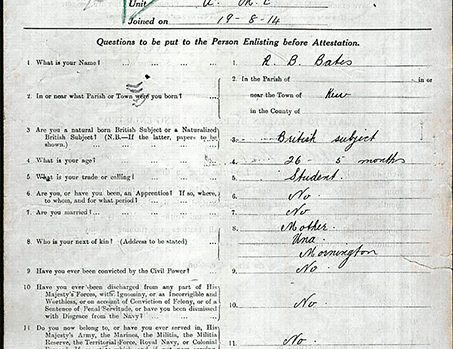 Unit
Joined on 19-8-14
Questions to be put to the Person Enlisting before Attestation.
1. What is your Name?
1. R. B. Bates
2. In or near what Parish or Town were you born?
2. In the Parish of in or
near the Town of Kew
in the County of
3. Are you a natural born British Subject or a Naturalized
British Subject? (N.B.—If the latter, papers to be
shown.)
3. British subject
4. What is your age?
4. 26 5 months
5. What is your trade or calling?
5. Student.
6. Are you, or have you been, an Apprentice? If so, where,
to whom, and for what period?
6. No
7. Are you married?
7. No
8. Who is your next of kin? (Address to be stated)
8. Mother
Una
Mornington
9. Have you ever been convicted by the Civil Power?
9. No.
10. Have you ever been discharged from any part of His
Majesty's Forces, with Ignominy, or as Incorrigible and
Worthless, or on account of Conviction of Felony, or of a
Sentence of Penal Servitude, or have you been dismissed
with Disgrace from the Navy?
10. No.
11. Do you now belong to, or have you ever served in, His
Majesty's Army, the Marines, the Militia, the Militia
Reserve, the Territorial Force, Royal Navy, or Colonial
11. No.